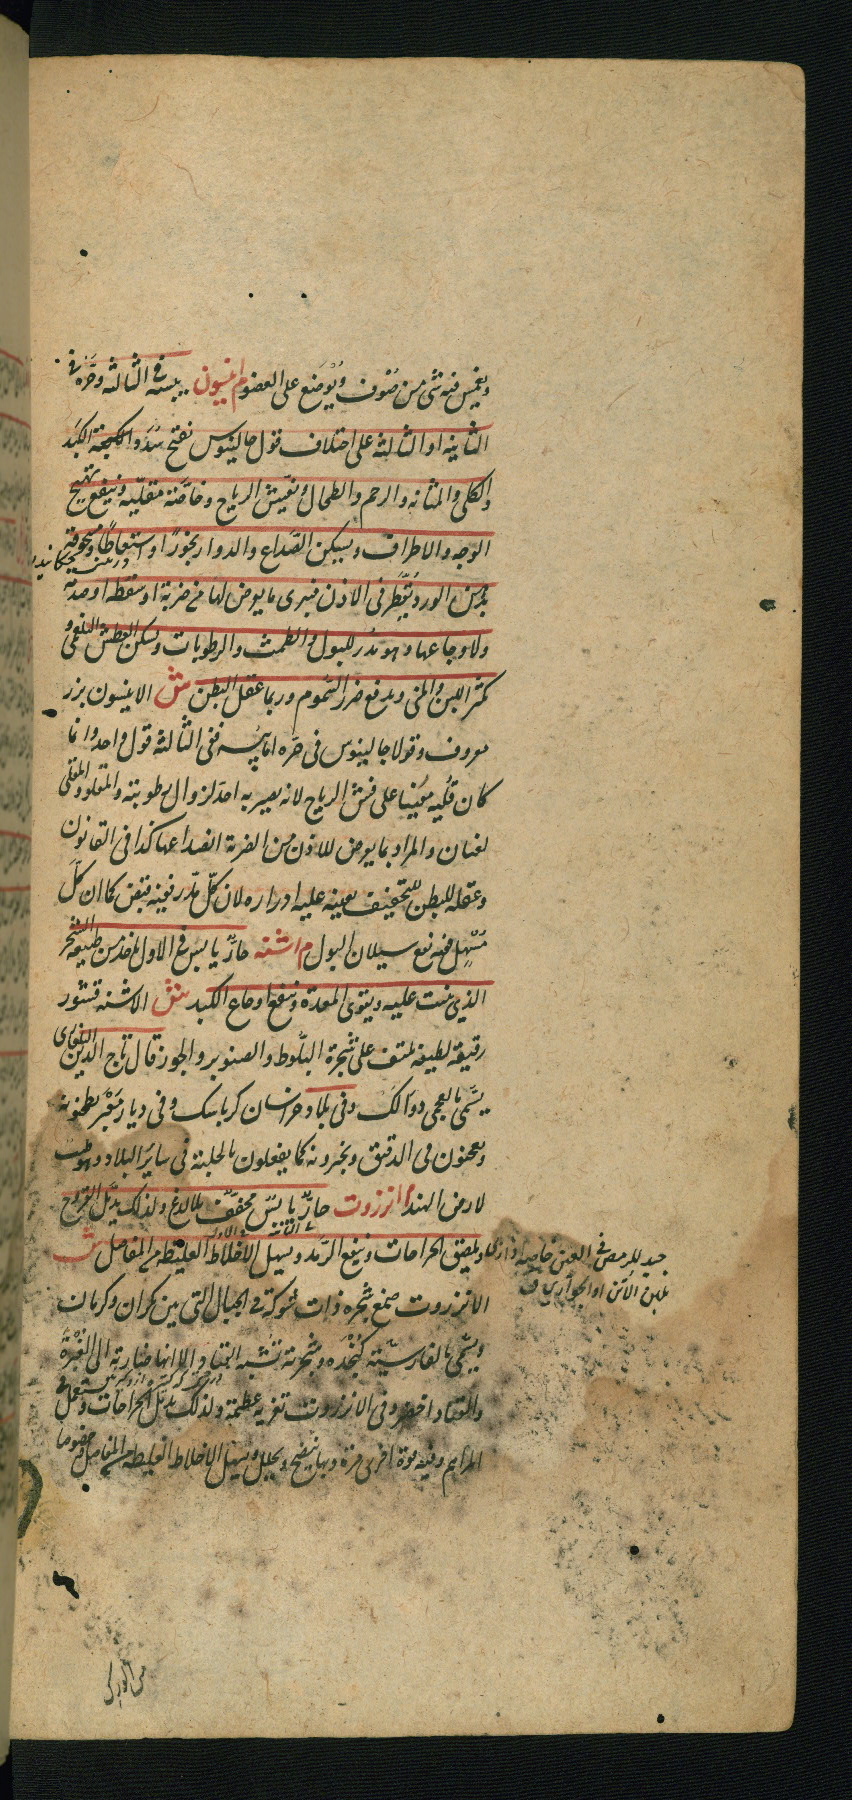 ويغمس فيه شئ من صوف ويوضع على العضو م انيسون يبسه في الثالثة وحره في
الثانية او الثالثة على اختلاف قول جالينوس يفتح سدد الكبد
والكلى والمثانة والرحم والطحال ويفش الرياح وخاصة مقليه وينفع تهيج
الوجه والاطراف ويسكن الصداع والدوار بخورا واستعاطا ومسحوقه
بدهن الورد يقطر في الاذن فيبرئ ما يعرض لها من ضربة او سقطة او صدمة
ولاوجاعها وهو يدر للبول والطمث والرطوبات ويسكن العطش البلغمى و
يكثر اللبن والمنى ويدفع ضرر السموم وربما عقل البطن ش الانيسون بزر
معروف وقولا جالينوس في حره اما يبسه ففى الثالثة قول واحد وانما
كان قليه معينا على فش الرياح لانه يصير به احد لزوال رطوبته والمقلو والمقلى
لغتان والمراد بما يعرض للاذن من الضربة انصداعها كذا في القانون
وعقله للبطن للتجفيف يعينه عليه ادراره لان كل مدر ففيه قبض كما ان كل
مسهل فهو يمنع سيلان البول م اشنه حار يابس في الاول ياخذ من طبيعة الشجر
الذي ينبت عليه ويقوى المعدة وينفع اوجاع الكبد ش الاشنه قشور
رقيقة لطيفة تلتف على شجرة البلوط والصنوبر والجوز قال تاج الدين البلغارى
يسمى بالعجمى دوالك وفي بلاد خراسان كرباسك وفي ديار مصر يطحنونه
ويعجنون في الدقيق ويخبزونه كما يفعلون بالحلبة في ساير البلاد وهو طيب
لارض الهند م انزروت حار يابس مجفف بلا لذع ولذلك يدمل القروح
ويلصق الجراحات وينفع الرمد ويسهل الاخلاط الغليظة من المفاصل ش
جيد للرمص في العين خاصة
بلبن الاتن او الجوارى
الانزروت صمغ شجره ذات شوكة في الجبال التى بين مكران وكرمان
ويسمى بالفارسيته كنجده وشجرته تشبه القتاد الا انها ضاربة الى الغبرة
والقتاد اخضر وفى الانزروت تغرية عظيمة ولذلك يدمل الجراحات ويستعمل في
المراهم وفيه قوة اخرى مرة وبها ينضج ويحلل ويسهل الاخلاط الغليظة من المفاصل خصوصا
من الورك